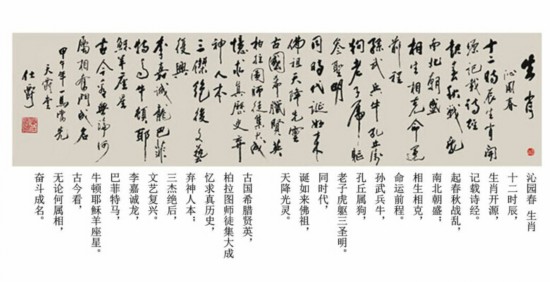 生肖
沁园春
十二時辰生肖開
源記載詩經
起春秋戰亂
南北朝盛
相生相克命運
前程
孫武兵牛孔丘屬
狗老子虎軀三
聖明
同時代誕如來
佛祖天降光靈
古國希臘賢英
柏拉圖師徒集大成
憶求真歷史弃
神人本
三傑絕後文藝
復興
李嘉誠龍巴菲
特馬牛頓耶
穌羊座星
古今看無論何
屬相奮鬥成名
甲午年一馬當先
沁园春 生肖
十二时辰,
生肖开源,
记载诗经。
起春秋战乱,
南北朝盛;
相生相克,
命运前程。
孙武兵牛,
孔丘属狗,
老子虎躯三圣明。
同时代,
诞如来佛祖,
天降光灵。
古国希腊贤英,
柏拉图师徒集大成
忆求真历史,
弃神人本;
三杰绝后,
文艺复兴,
李嘉诚龙,
巴菲特马,
牛顿耶稣羊座星。
古今看,
无论何属相,
奋斗成名。